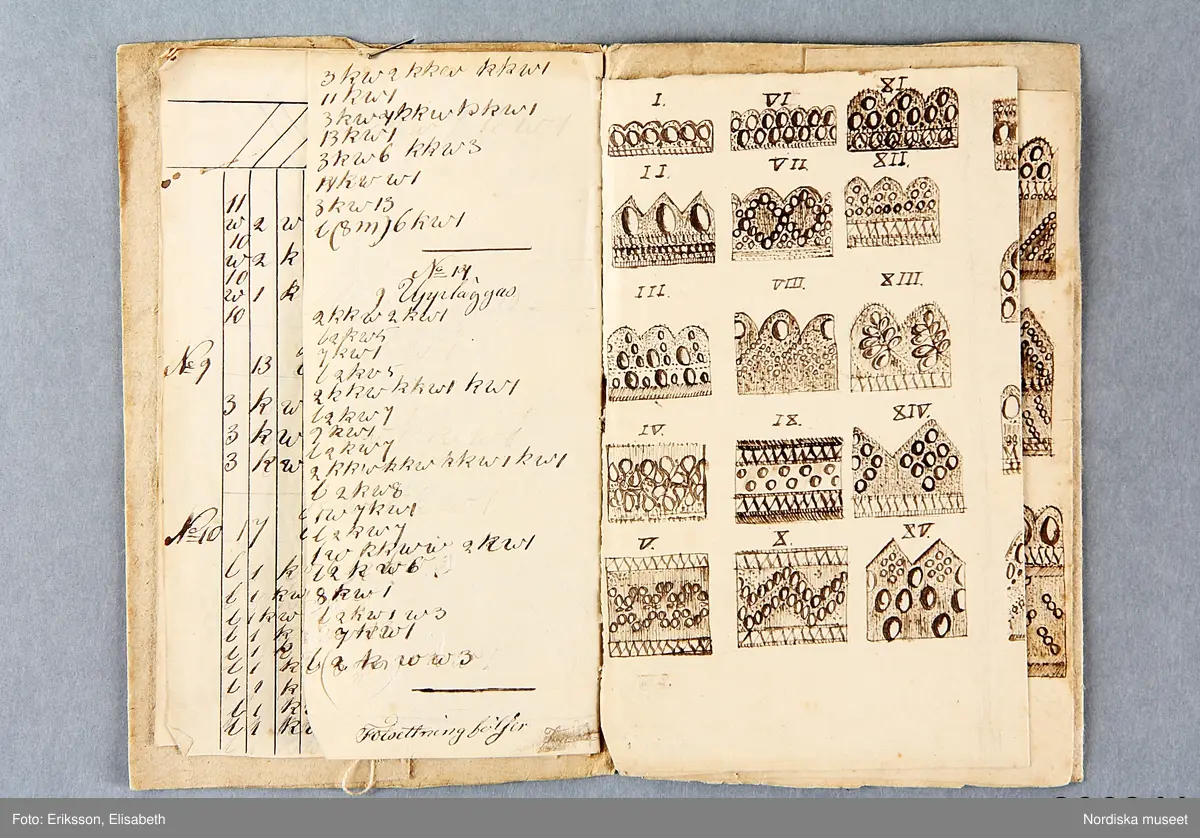 3kw2kkw kkw1
11kw1
3kw4kkw kkw1
13kw1
3kw6 kkw3
w1
3kw13
l(8m)6kw1
No 14
9 Upplägges
2kkw2kw1
l2kw5
7kw1
l2kw5
2kkw kkw1 kw1
l2kw7
2kw1
l2kw7
2kkwkkwkkw1kw1
l2kw8
l1w7kw1
l2kw7
1w kkw 2kw1
l2kw6
8kw1
l2kw1w3
7kw1
l2k w3
Forsettning följer
11
w 2 w
10
w 2 k
10
w 1 k
10
No 9 13
3 k w
3 k w
3 k w
No 10 17
l 1 k
l 1 kw
l 1 kw
l 1 k
l 1 k
l 1 k
l 1 k
l 1 k
l 1 k
I. VI XI
II. VII XII.
III. VIII. XIII.
IV. IX. XIV.
V. X. XV.
Foto: Eriksson, Elisabeth
Nordiska museet